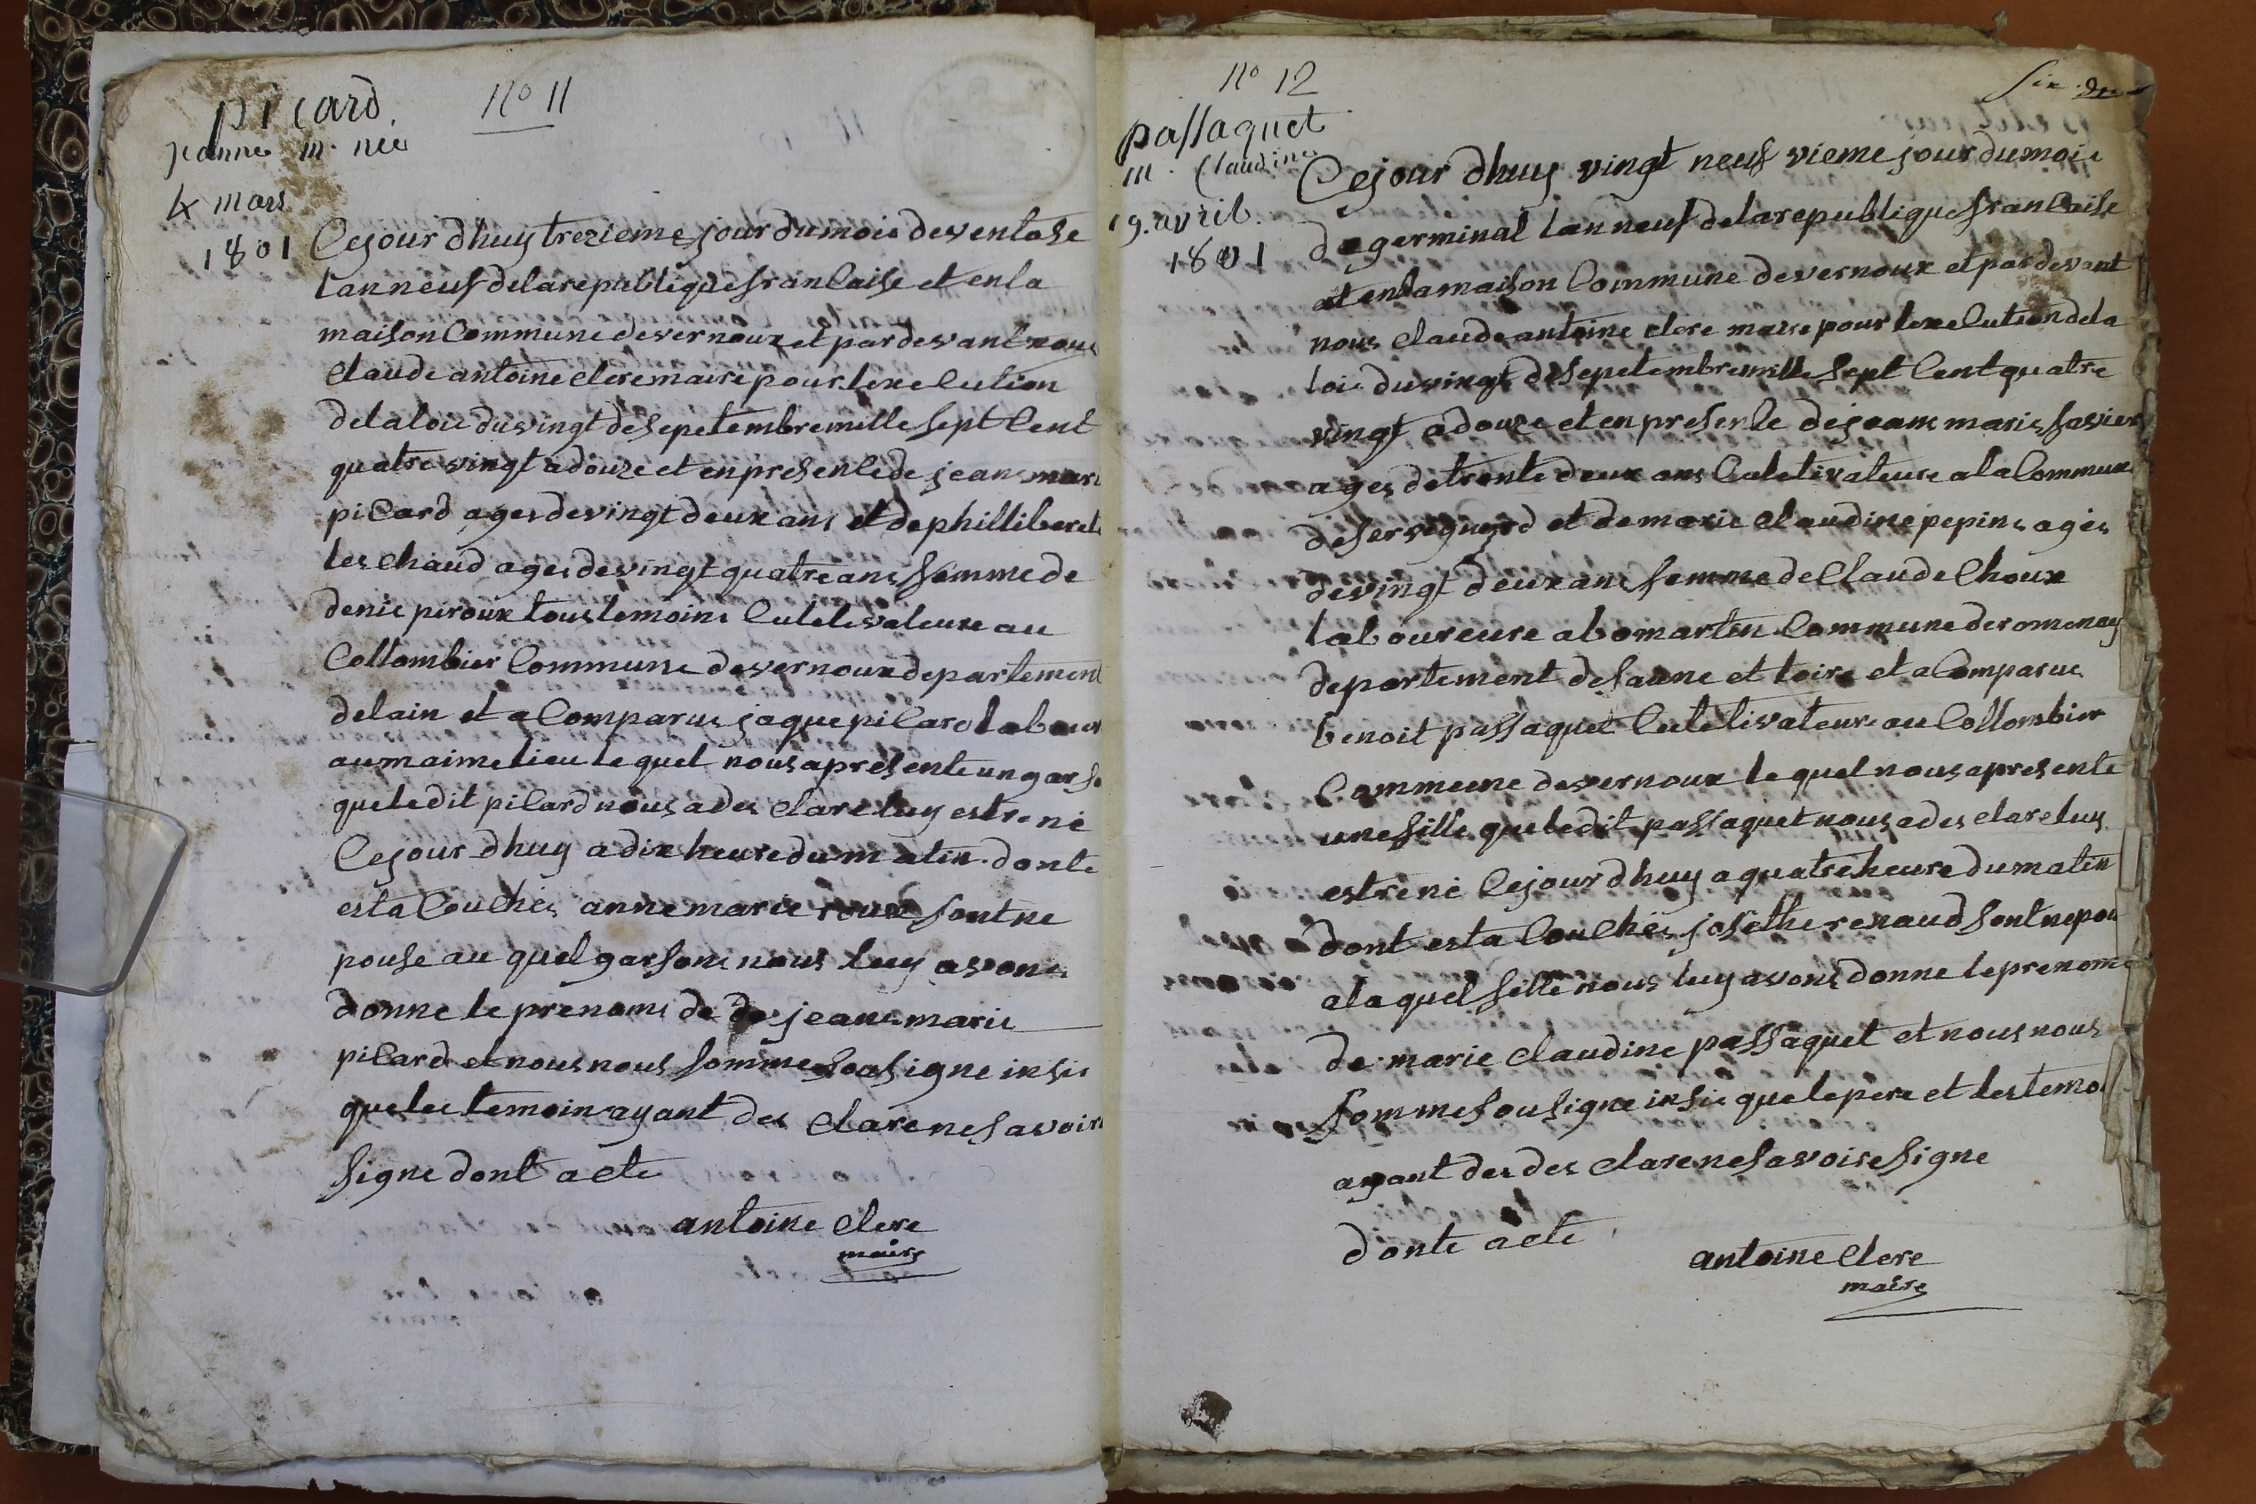 No 11
picard
jeanne m. née
4 mars
1801
Cejour dhuy trezieme jour du mois deventose
lanneuf delarepublique franCaise et enla
maison Commune devernoux et pardevant nous
Claude antoine clere maire pour lexeCution
delaloie duvingt desepetembre mille sept Cent
quatre vingt adouze et enpresenCe de jeane mari
piCard ages devingt deux ans et de philliberete
les Chaud ages devingt quatre ans femme de
denie peroux tous temoins Culetivateure au
Collombier Commune devernoux departement
delain et a Comparue jaque piCard labour
au maime lieu le quel nous apresente un garso
queledit piCard nous a des clare luy estre né
Cejour dhuy a dix heure dumatin donte
esta Couchée anne marie roux sont ne
pouse au quel garsone nous luy avons
donne le prenoms de de jeane marie
piCard et nous nous somme sousigne insie
que les temoin ayant des clare ne savoire
signe dont acte
antoine Clere
maire
No 12
passaquet
m. Claudine
19. avril.
1801
Cejour dhuy vingt neuf vieme jour dumoie
de germinal lan neuf delarepublique franCaise
et enlamaison Commune devernoux et pardevant
nous Claude antoine clere maire pour lexeCution dela
loie duvingt desepetembre mille sept Cent quatre
vingt adouze et en presenCe de jeane marie savier
ages de trente deux ans Culetivateure ala Commune
deservignard et de marie Claudine pepine ages
devingt deux ans femme de Claude Choux
laboureure abomartin Commune deromenay
departement desaune et loire et a Comparue
benoit passaquet Culetivateure au Collombier
Commeune devernoux le quel nous apresente
une fille queledit passaquet nous a des clare luy
estre né Cejour dhuy a quatre heure dumatin
dont esta Couchée josethe renaud sont nepou
ala quel fille nous luy avons donne le prenome
de marie Claudine passaquet et nous nous
somme sousigne insie que le pere et les temo
ayant des des clare ne savoire signe
donte acte
antoine Clere
maire